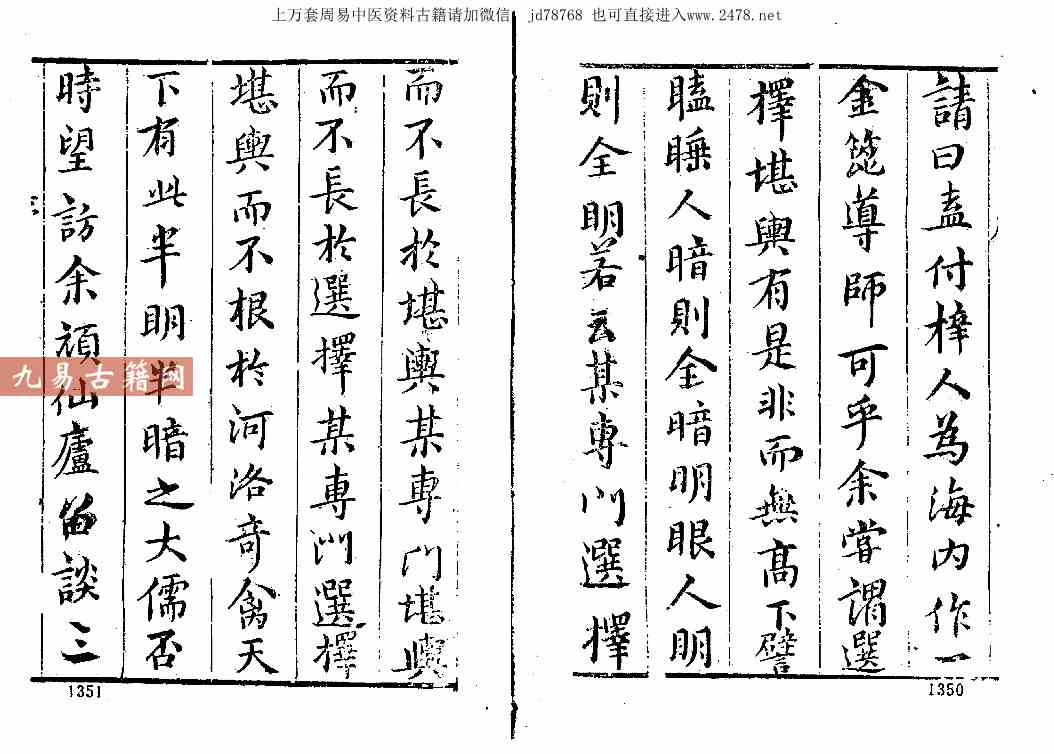 上万套周易中医资料古籍请加微信 jd78768 也可直接进入www.2478.net
請曰盍付梓人為海内作一
金篦導師可乎余嘗謂選
擇堪輿有是非而無高下譬
瞌睡人暗則全暗明眼人明
則全明若云某專門選擇
1350
而不長於堪輿某專門堪輿
而不長於選擇某專門選擇
堪輿而不根於河洛奇禽天
下有此半明半暗之大儒否
時望訪余頑仙廬留談三
1351
九易古籍网